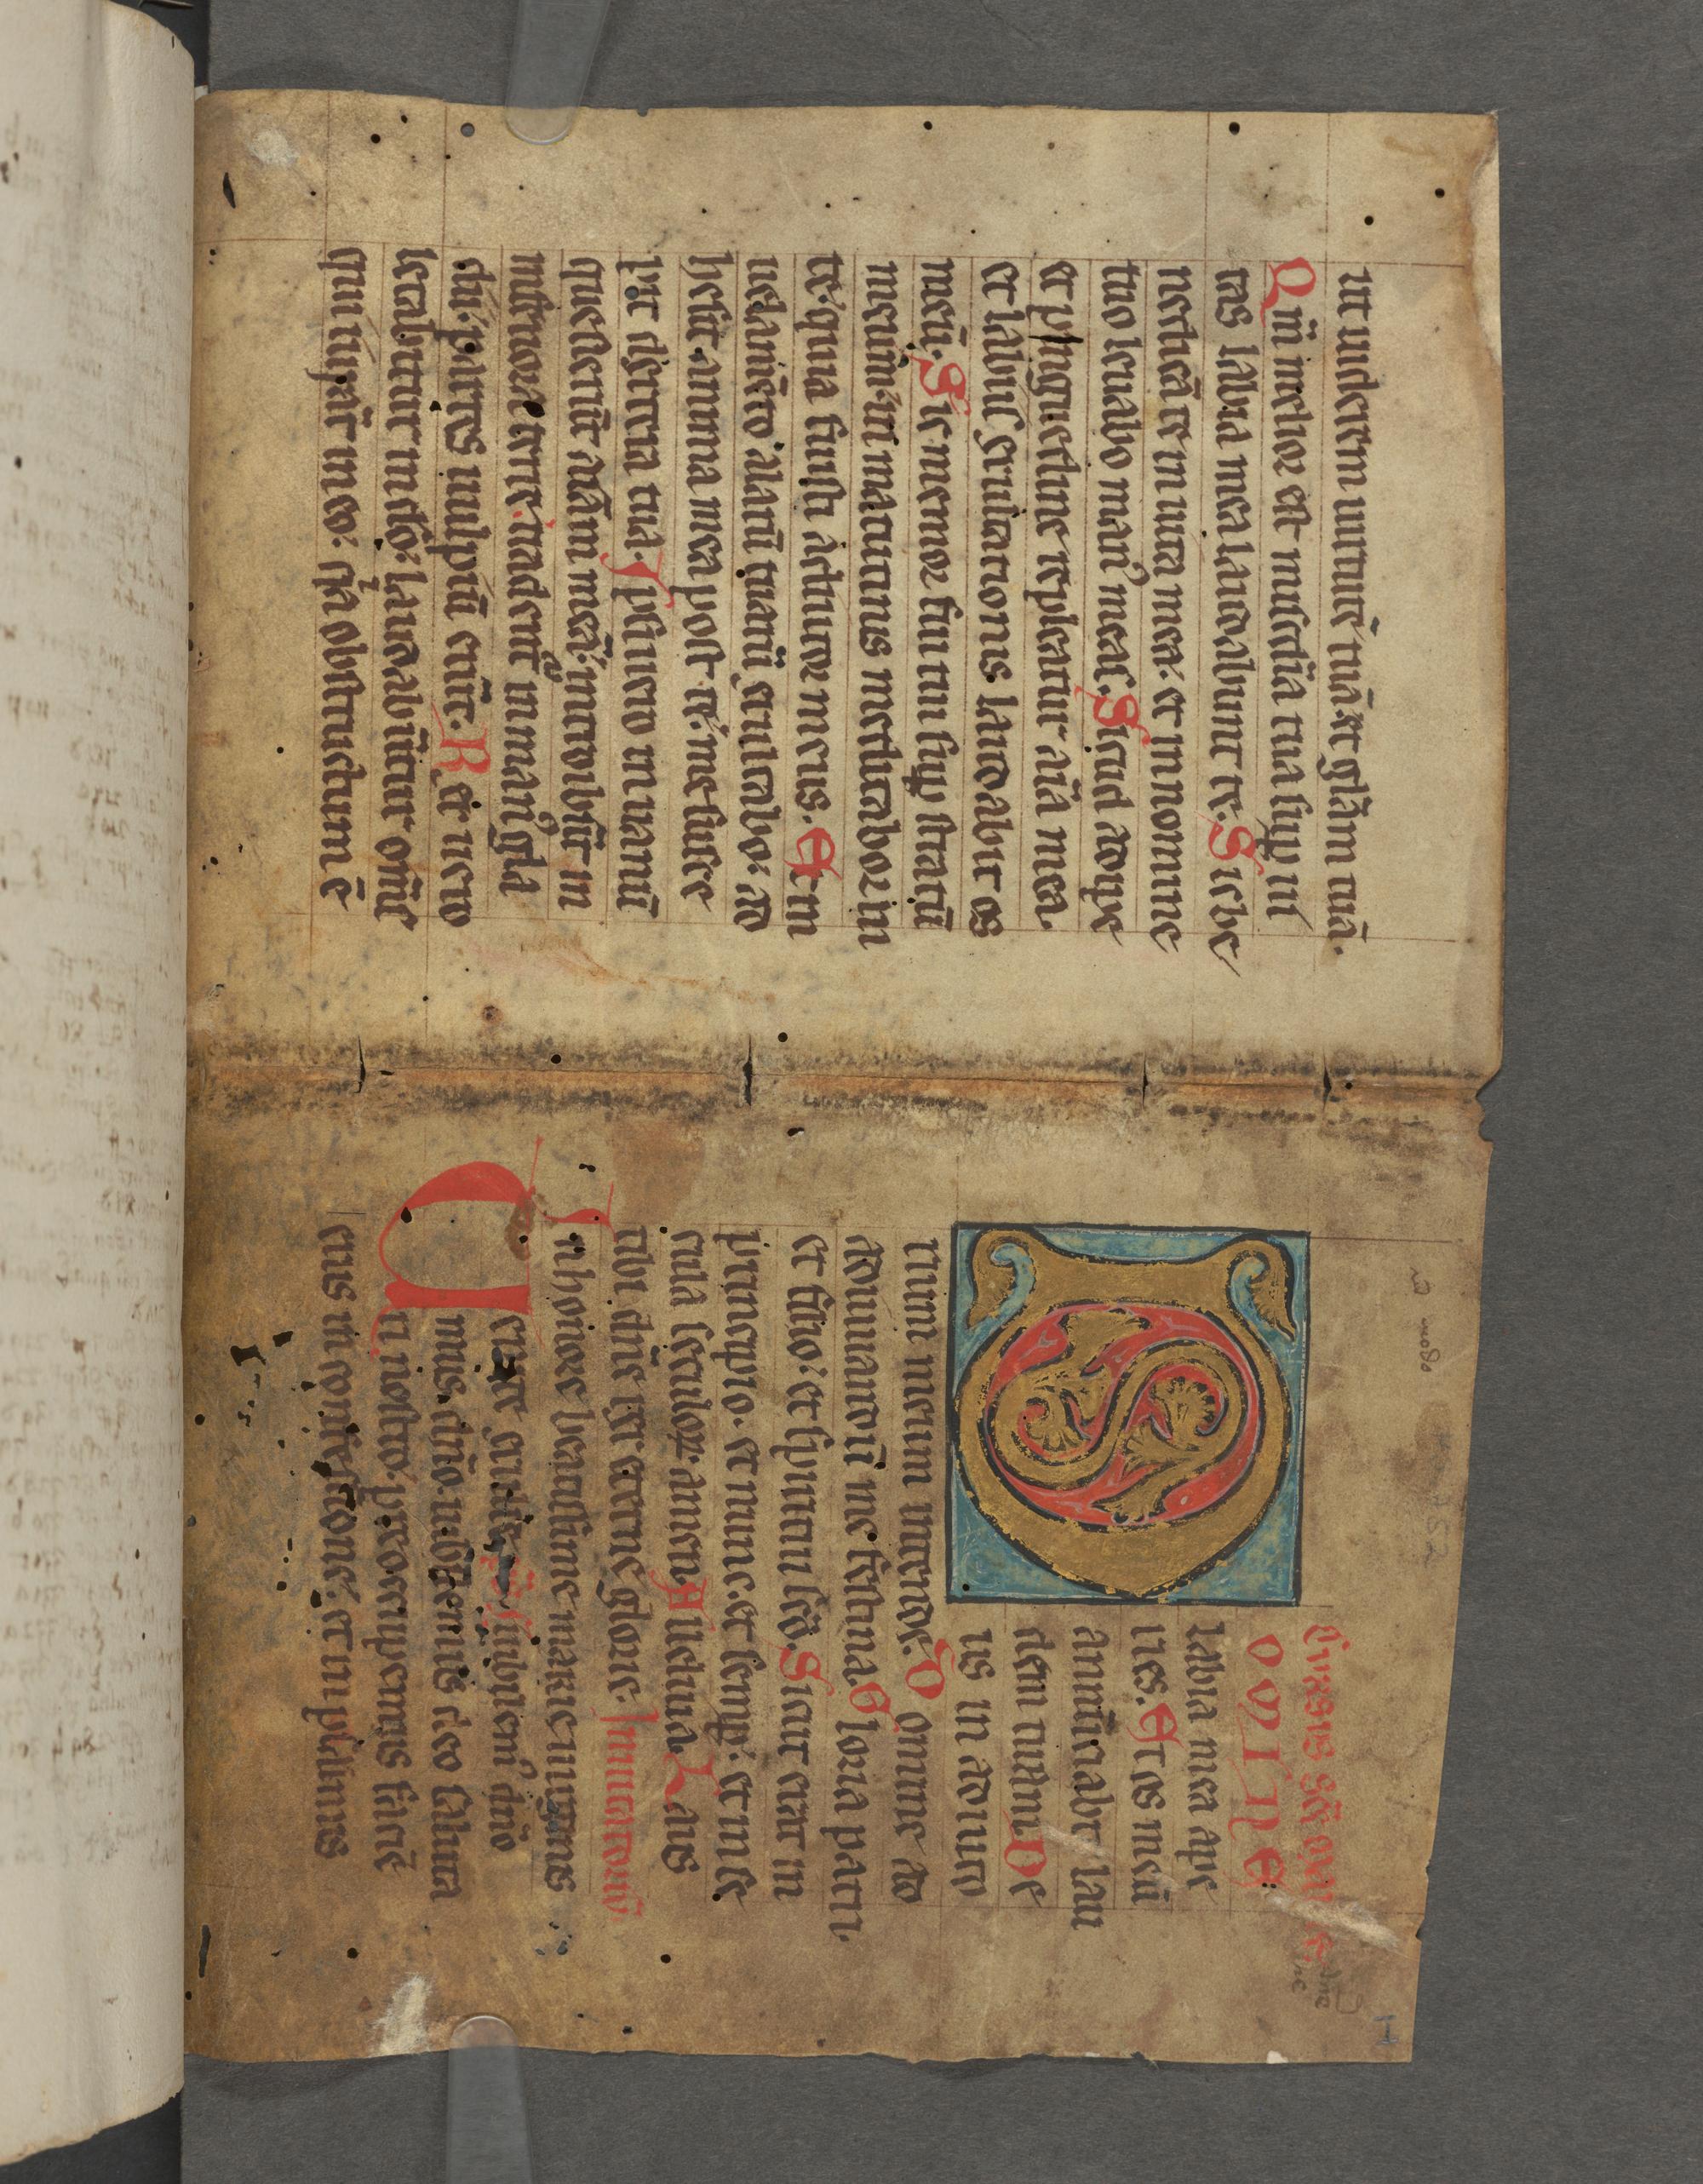 ut uiderem uirtutē tuā. ⁊ gl̄am tuā.
Qm̄ melior est mis̄cdia tua sup ui
tas labia mea laudabunt te. Sic be
nedicā te in uita mea: et in nomine
tuo leuabo man⁹ meas. Sicud adipe
et pinguedine repleatur aīa mea.
et labiis exultationis laudabit os
meū. Sic memor fui tui sup stratū
meum in matutinis meditabor in
te: quia fuisti adiutor meus. Et in
uelamēto alarū tuarū exultabo: ad
hesit anima mea post te: me susce
pit dextera tua. Ipsi uero in uanū
quesierūt aīam meā: introibūt in
inferiora terre: tradent̄ in man⁹ gla
dii: partes uulpiū erūt. Rex uero
letabitur in deo: laudabūtur om̄s
qui iurāt in eo: q̄a obstructum ē
Cursus sc̄e marie
OMINE
labia mea ape
ries. Et os meū
annūtiabit lau
dem tuam. De
us in adiuto
rium meum intende. Domine ad
adiuuandū me festina. Gloria patri
et filio: et spiritui sc̄o. Sicut erat in
principio. et nunc. et semp: et in se
cula seculoꝝ amen. Alleluia. Laus
tibi dn̄e rex eterne glorie. Inuitatoriū
In honore beatissime marie uirginis
iubilem⁹ dn̄o
Uenite exultemus dn̄o iubilemus deo saluta
ri nostro. preoccupemus facie
eius in confessione: et in psalmis
I